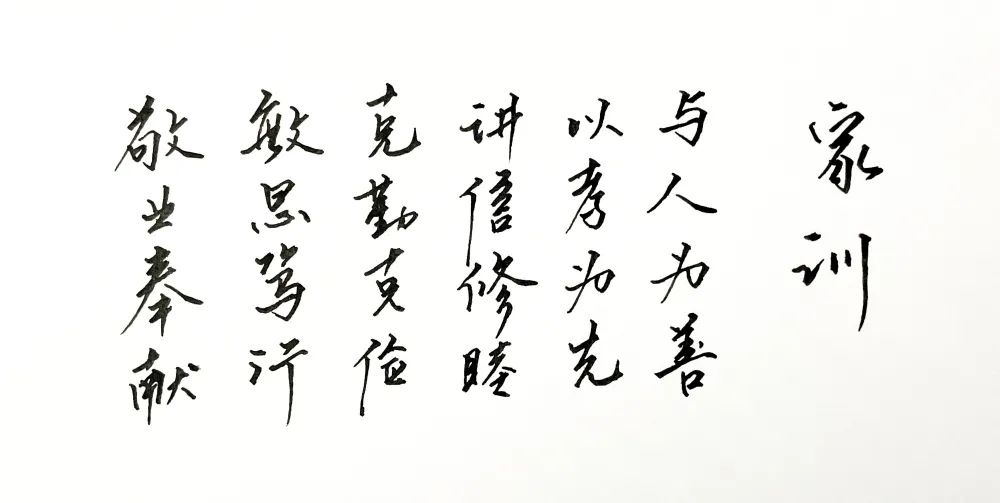 家训
与人为善
以孝为先
讲信修睦
克勤克俭
敏思笃行
敬业奉献